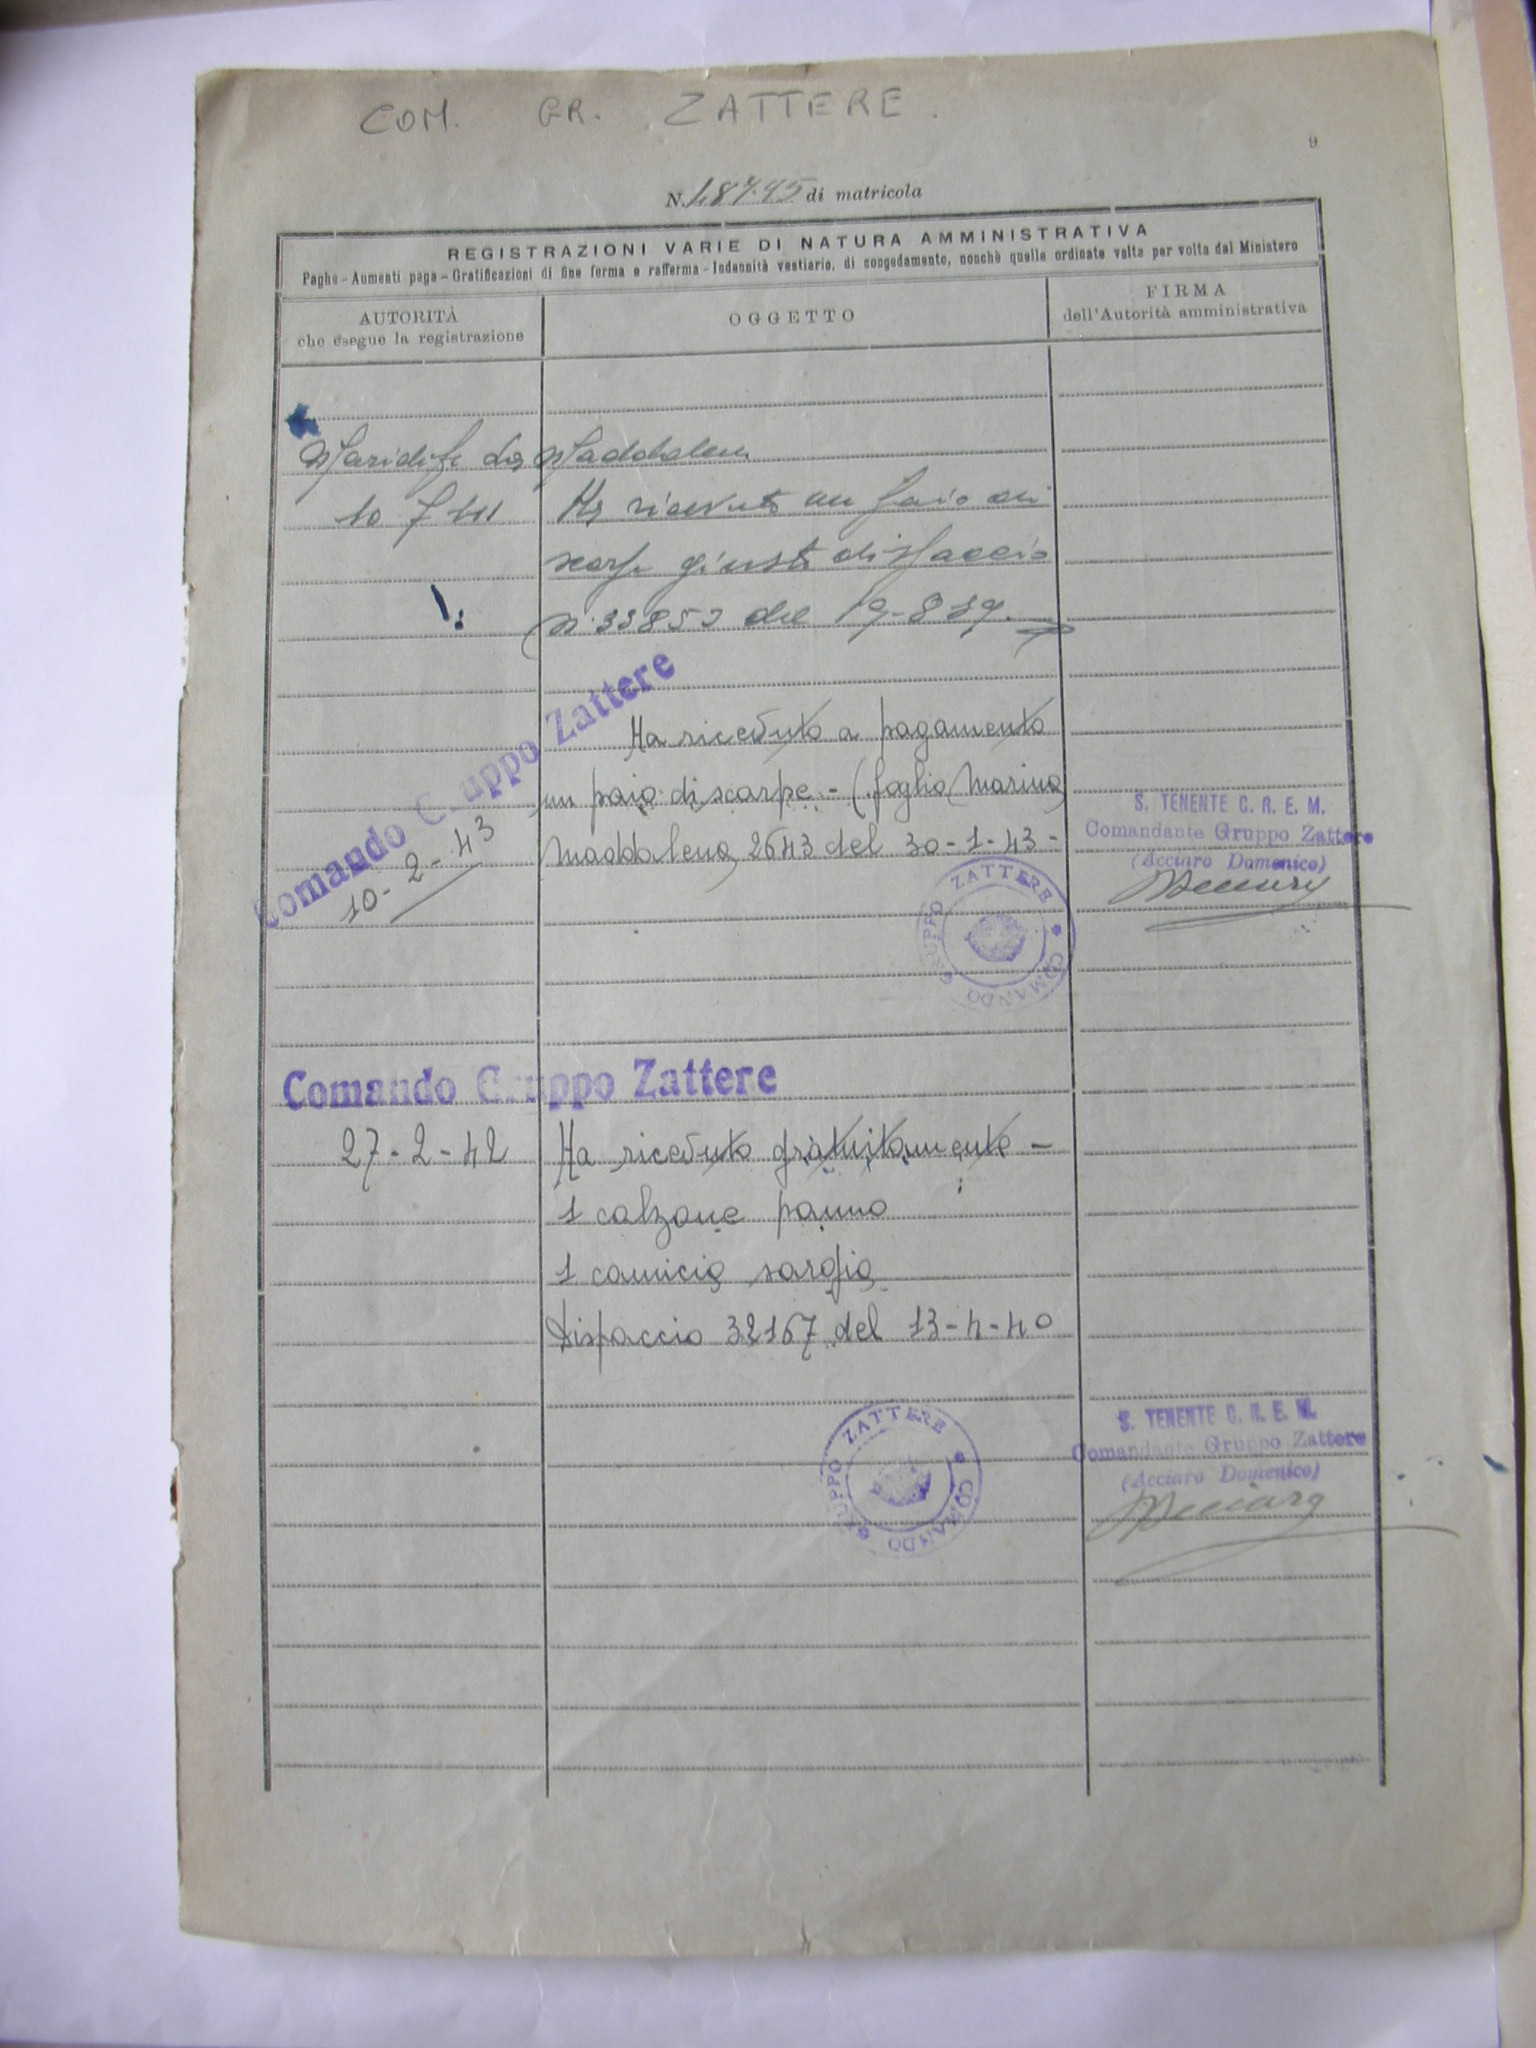 COM. GR. ZATTERE.
9
N. 18795 di matricola
REGISTRAZIONI VARIE DI NATURA AMMINISTRATIVA
Paghe - Aumenti paga - Gratificazioni di fine ferma e rafferma - Indennità vestiario, di congedamento, nonchè quelle ordinate volta per volta dal Ministero
AUTORITÀ
che esegue la registrazione
OGGETTO
FIRMA
dell'Autorità amministrativa
La Maddalena
Ha ricevuto un paio di
scarpe giusto dispaccio
del 19-8-39.
Comando Gruppo Zattere
10-2-43
Ha ricevuto a pagamento
un paio di scarpe - (foglio Marina
Maddalena 2643 del 30-1-43 -
S. TENENTE C. R. E. M.
Comandante Gruppo Zattere
(Acciaro Domenico)
Acciaro
COMANDO GRUPPO ZATTERE
Comando Gruppo Zattere
27-2-42
Ha ricevuto gratuitamente -
1 calzone panno
1 camicia sargia
Dispaccio 32167 del 13-4-40
COMANDO GRUPPO ZATTERE
S. TENENTE C. R. E. M.
Comandante Gruppo Zattere
(Acciaro Domenico)
Acciaro